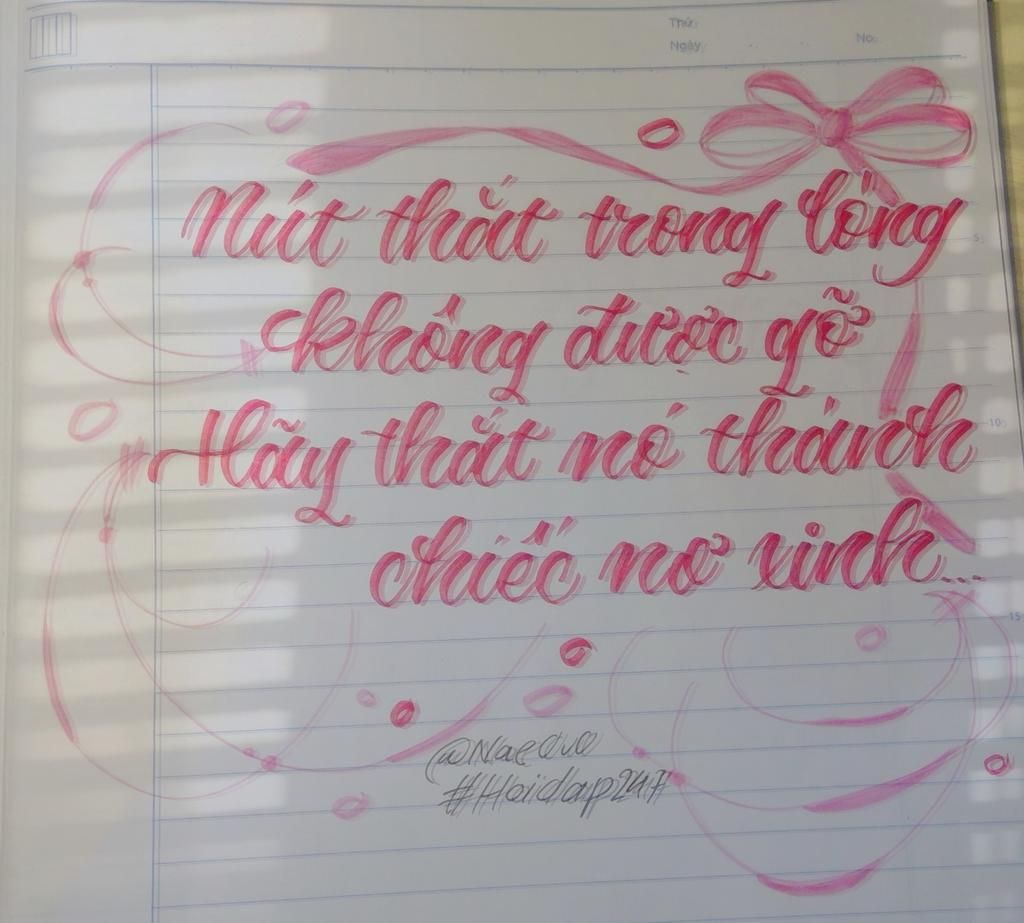 Thứ:
Ngày:
No.
Nút thắt trong lòng
không được gỡ
Hãy thắt nó thành
chiếc nơ xinh...
5
10
15
#Hoidap247